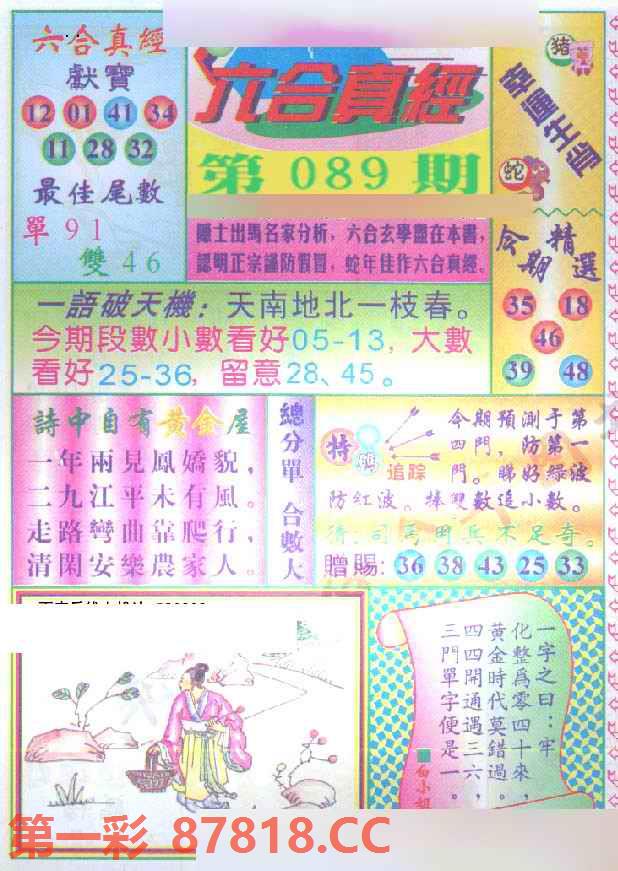 六合真經
獻寶
12 01 41 34
11 28 32
最佳尾數
單 9 1
雙 4 6
六合真經
第 089 期
隱士出馬名家分析，六合玄學盡在本書，
認明正宗謹防假冒，蛇年佳作六合真經。
豬
蛇
今期精選
35 18
46
39 48
一語破天機：天南地北一枝春。
今期段數小數看好05-13，大數
看好25-36，留意28、45。
詩中自有黃金屋
一年兩見鳳嬌貌，
二九江平未有風。
走路彎曲靠爬行，
清閑安樂農家人。
總分單 合數大
特碼
追踪
今期預測于第
四門，防第一
門。睇好綠波
防紅波。捧雙數追小數。
猜：司馬用兵不足奇。
贈賜：36 38 43 25 33
一字之曰：牢
化整為零四十來，
黃金時代莫錯過。
四四開通遇三六，
三門單字便是一。
第一彩 87818.CC